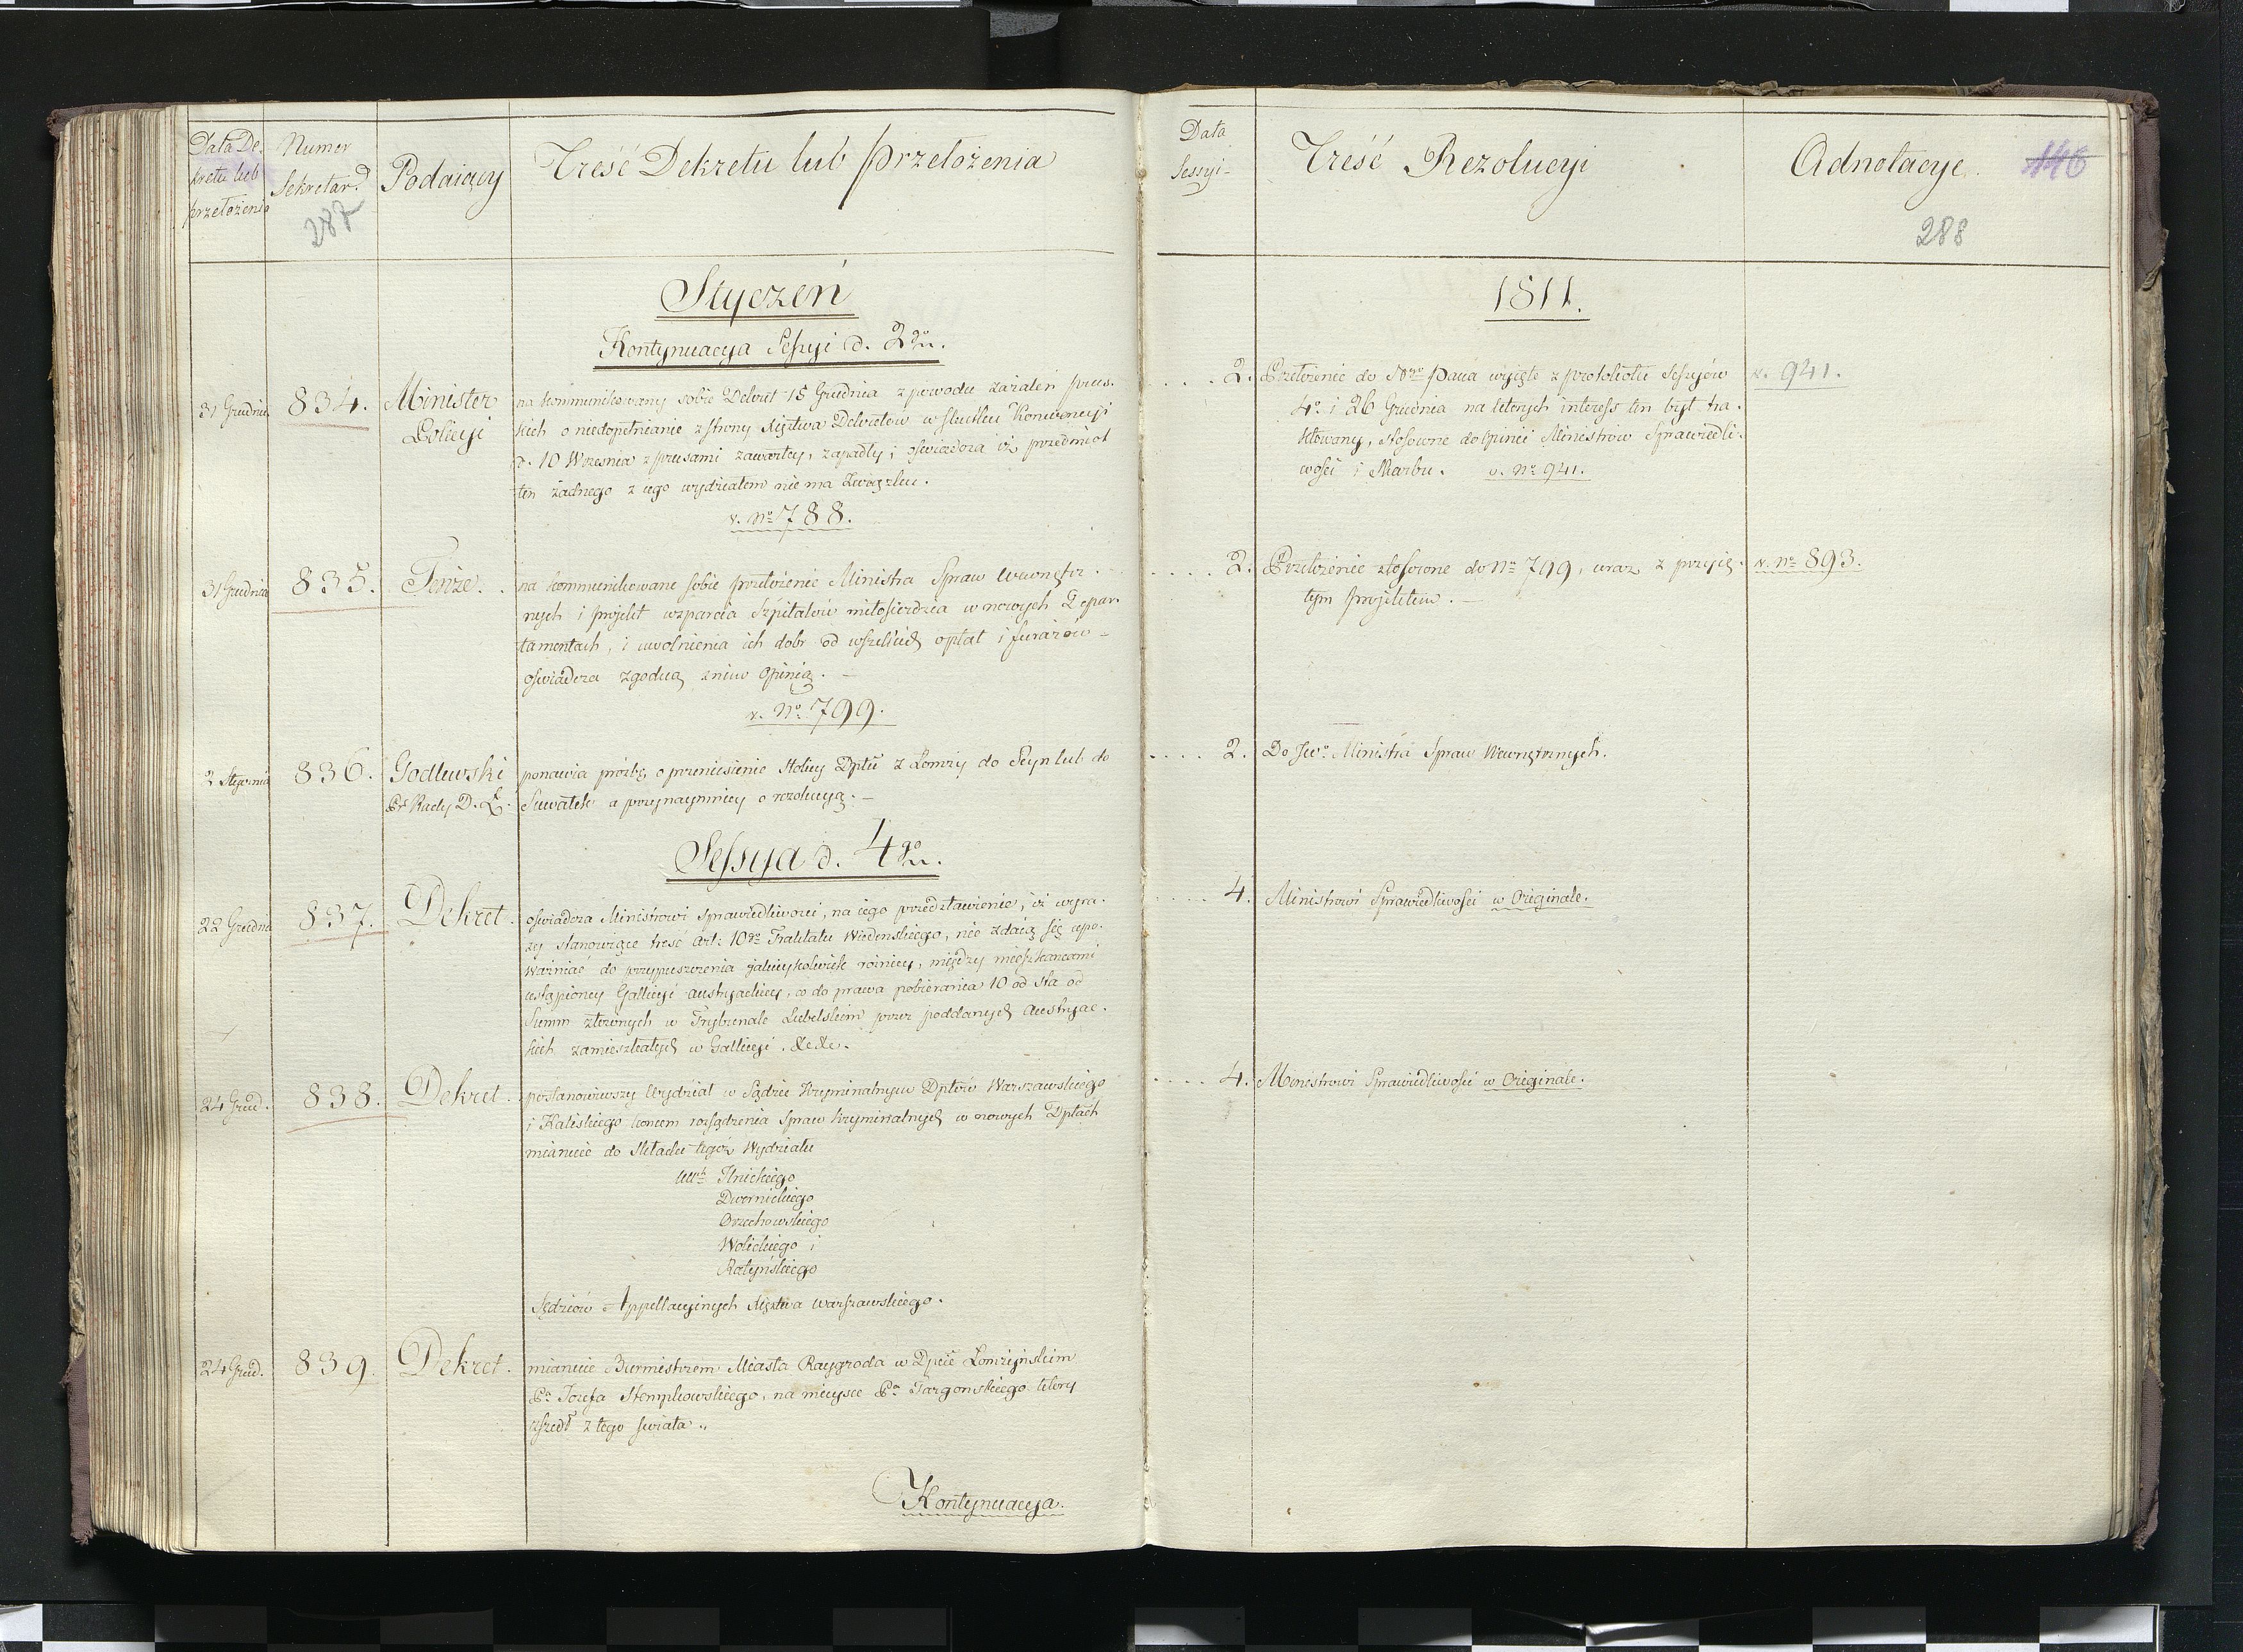 Data De-
kretu lub
przełożenia
Numer
Sekretar.
287
Podaiący
Treść Dekretu lub przełożenia
Styczeń
Kontynuacya Sessyi d. 2go
31 Grudnia
834.
Minister
Policyi
na kommunikowany sobie Dekret 15 Grudnia z powodu zażaleń prus-
kich o niedopełnianie z strony Xięztwa Dekretów w skutku Konwencyi
d. 10 Wrzesnia z prusami zawartey, zapadły; oswiadcza iż przedmiot
ten żadnego z iego wydziałem nie ma związku.
v. No 788.
31 Grudnia
835.
Tenże.
na kommunikowane sobie przełożenie Ministra Spraw Wewnętrz-
nych i projekt wsparcia Szpitalów miłosierdzia w nowych Depar-
tamentach, i uwolnienia ich dobr od wszelkich opłat i furażów
oswiadcza zgodną z nim opinią. —
v. No 799.
2 Stycznia
836.
Godlewski
Prs Rady D. Ł.
ponawia prózbę o przeniesienie stolicy Dptu z Łomzy do Seyn lub do
Suwałk a przynaymniey o rezolucyą. —
Sessya d. 4go
22 Grudnia
837.
Dekret.
oswiadcza Ministrowi Sprawiedliwosci, na iego przedstawienie, iż wyra-
zy stanowiące tresć art: 10go Traktatu Wiedenskiego, nie zdaią się upo-
ważniać do przypuszczenia jakieykolwiek rożnicy, między mieszkancami
ustąpioney Gallicyi austryackiey, co do prawa pobierania 10 od sta od
Summ złożonych w Trybunale Lubelskim przez poddanych Austryac-
kich zamieszkałych w Gallicyi. &c &c.
24 Grud.
838.
Dekret.
postanowiwszy Wydział w Sądzie Kryminalnym Dptów Warszawskiego
i Kaliskiego koncem rozsądzenia Spraw kryminalnych w nowych Dptach
mianuie do składu tegoż Wydziału
Ilnickiego
Dwernickiego
Orzechowskiego
Wolickiego i
Ratyńskiego
Sędziów Appellacyinych Xięztwa Warszawskiego.
24 Grud.
839.
Dekret.
mianuie Burmistrzem Miasta Raygroda w Dpcie Łomżyńskim
Pa Jozefa Stempkowskiego, na mieysce Pa Targonskiego który
zszedł z tego swiata.
Kontynuacya.
Data
Sessyi
Treść Rezolucyi
Adnotacye.
146
288
1811.
2.
Przełożenie do Nayo Pana wyięte z protokółu Sessyów
4o i 26 Grudnia na których interess ten był tra-
ktowany, stosowne do opinii Ministrów Sprawiedli-
wości i Skarbu. v. No 941.
v. 941.
2.
Przełożenie stosowne do No 799, wraz z przyię-
tym projektem. —
v. No 893.
2.
Do Jwo Ministra Spraw Wewnętrznych.
4.
Ministrowi Sprawiedliwości w Originale.
4.
Ministrowi Sprawiedliwości w Originale.